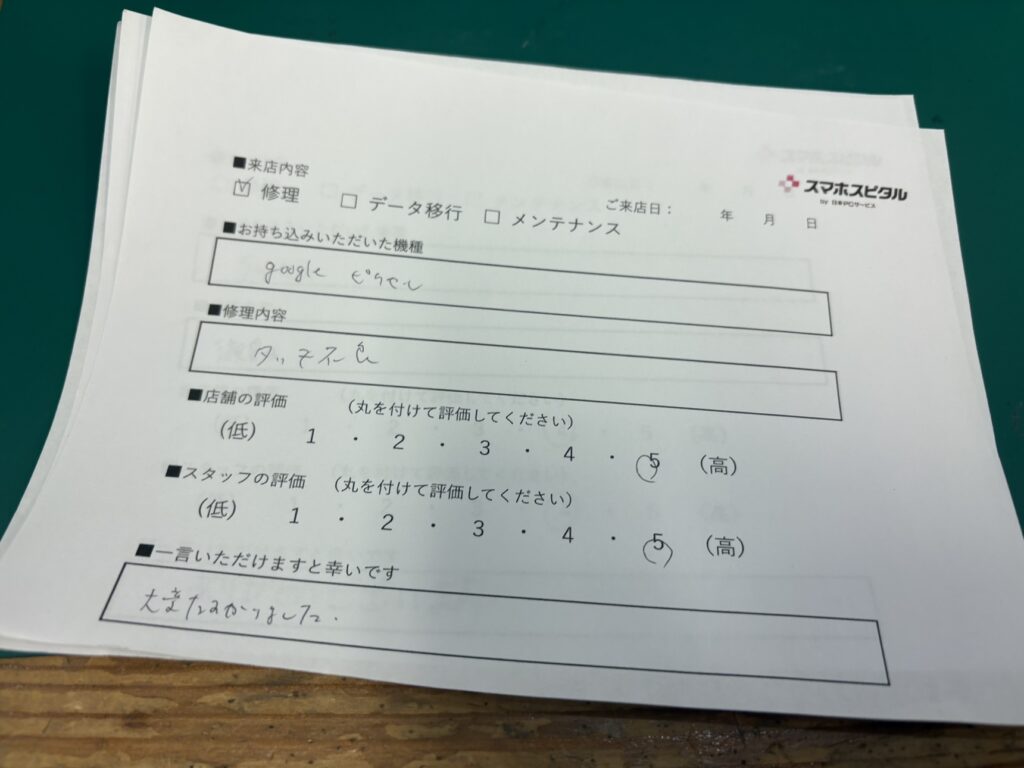 ■来店内容
☑ 修理 □ データ移行 □ メンテナンス
スマホスピタル
by 日本PCサービス
ご来店日： 年 月 日
■お持ち込みいただいた機種
google ピクセル
■修理内容
タッチ不良
■店舗の評価 （丸を付けて評価してください）
（低） 1 ・ 2 ・ 3 ・ 4 ・ 5 （高）
■スタッフの評価 （丸を付けて評価してください）
（低） 1 ・ 2 ・ 3 ・ 4 ・ 5 （高）
■一言いただけますと幸いです
大変たすかりました.